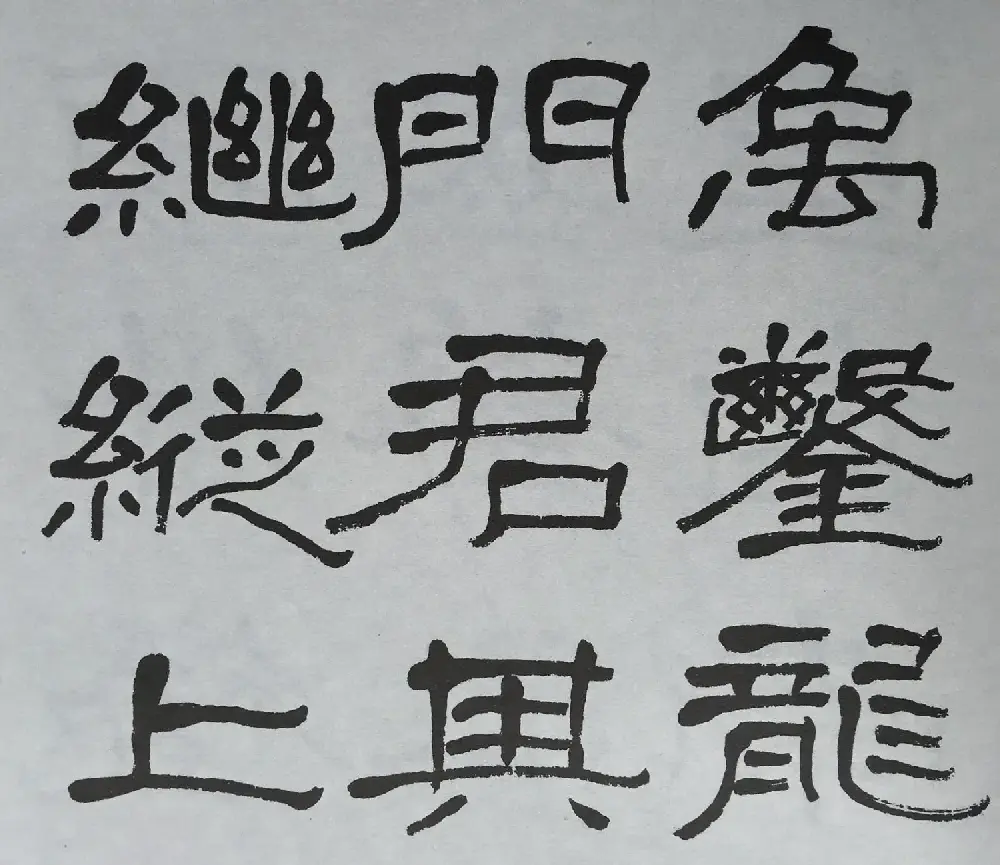 禹鑿龍
門君其
繼縱上